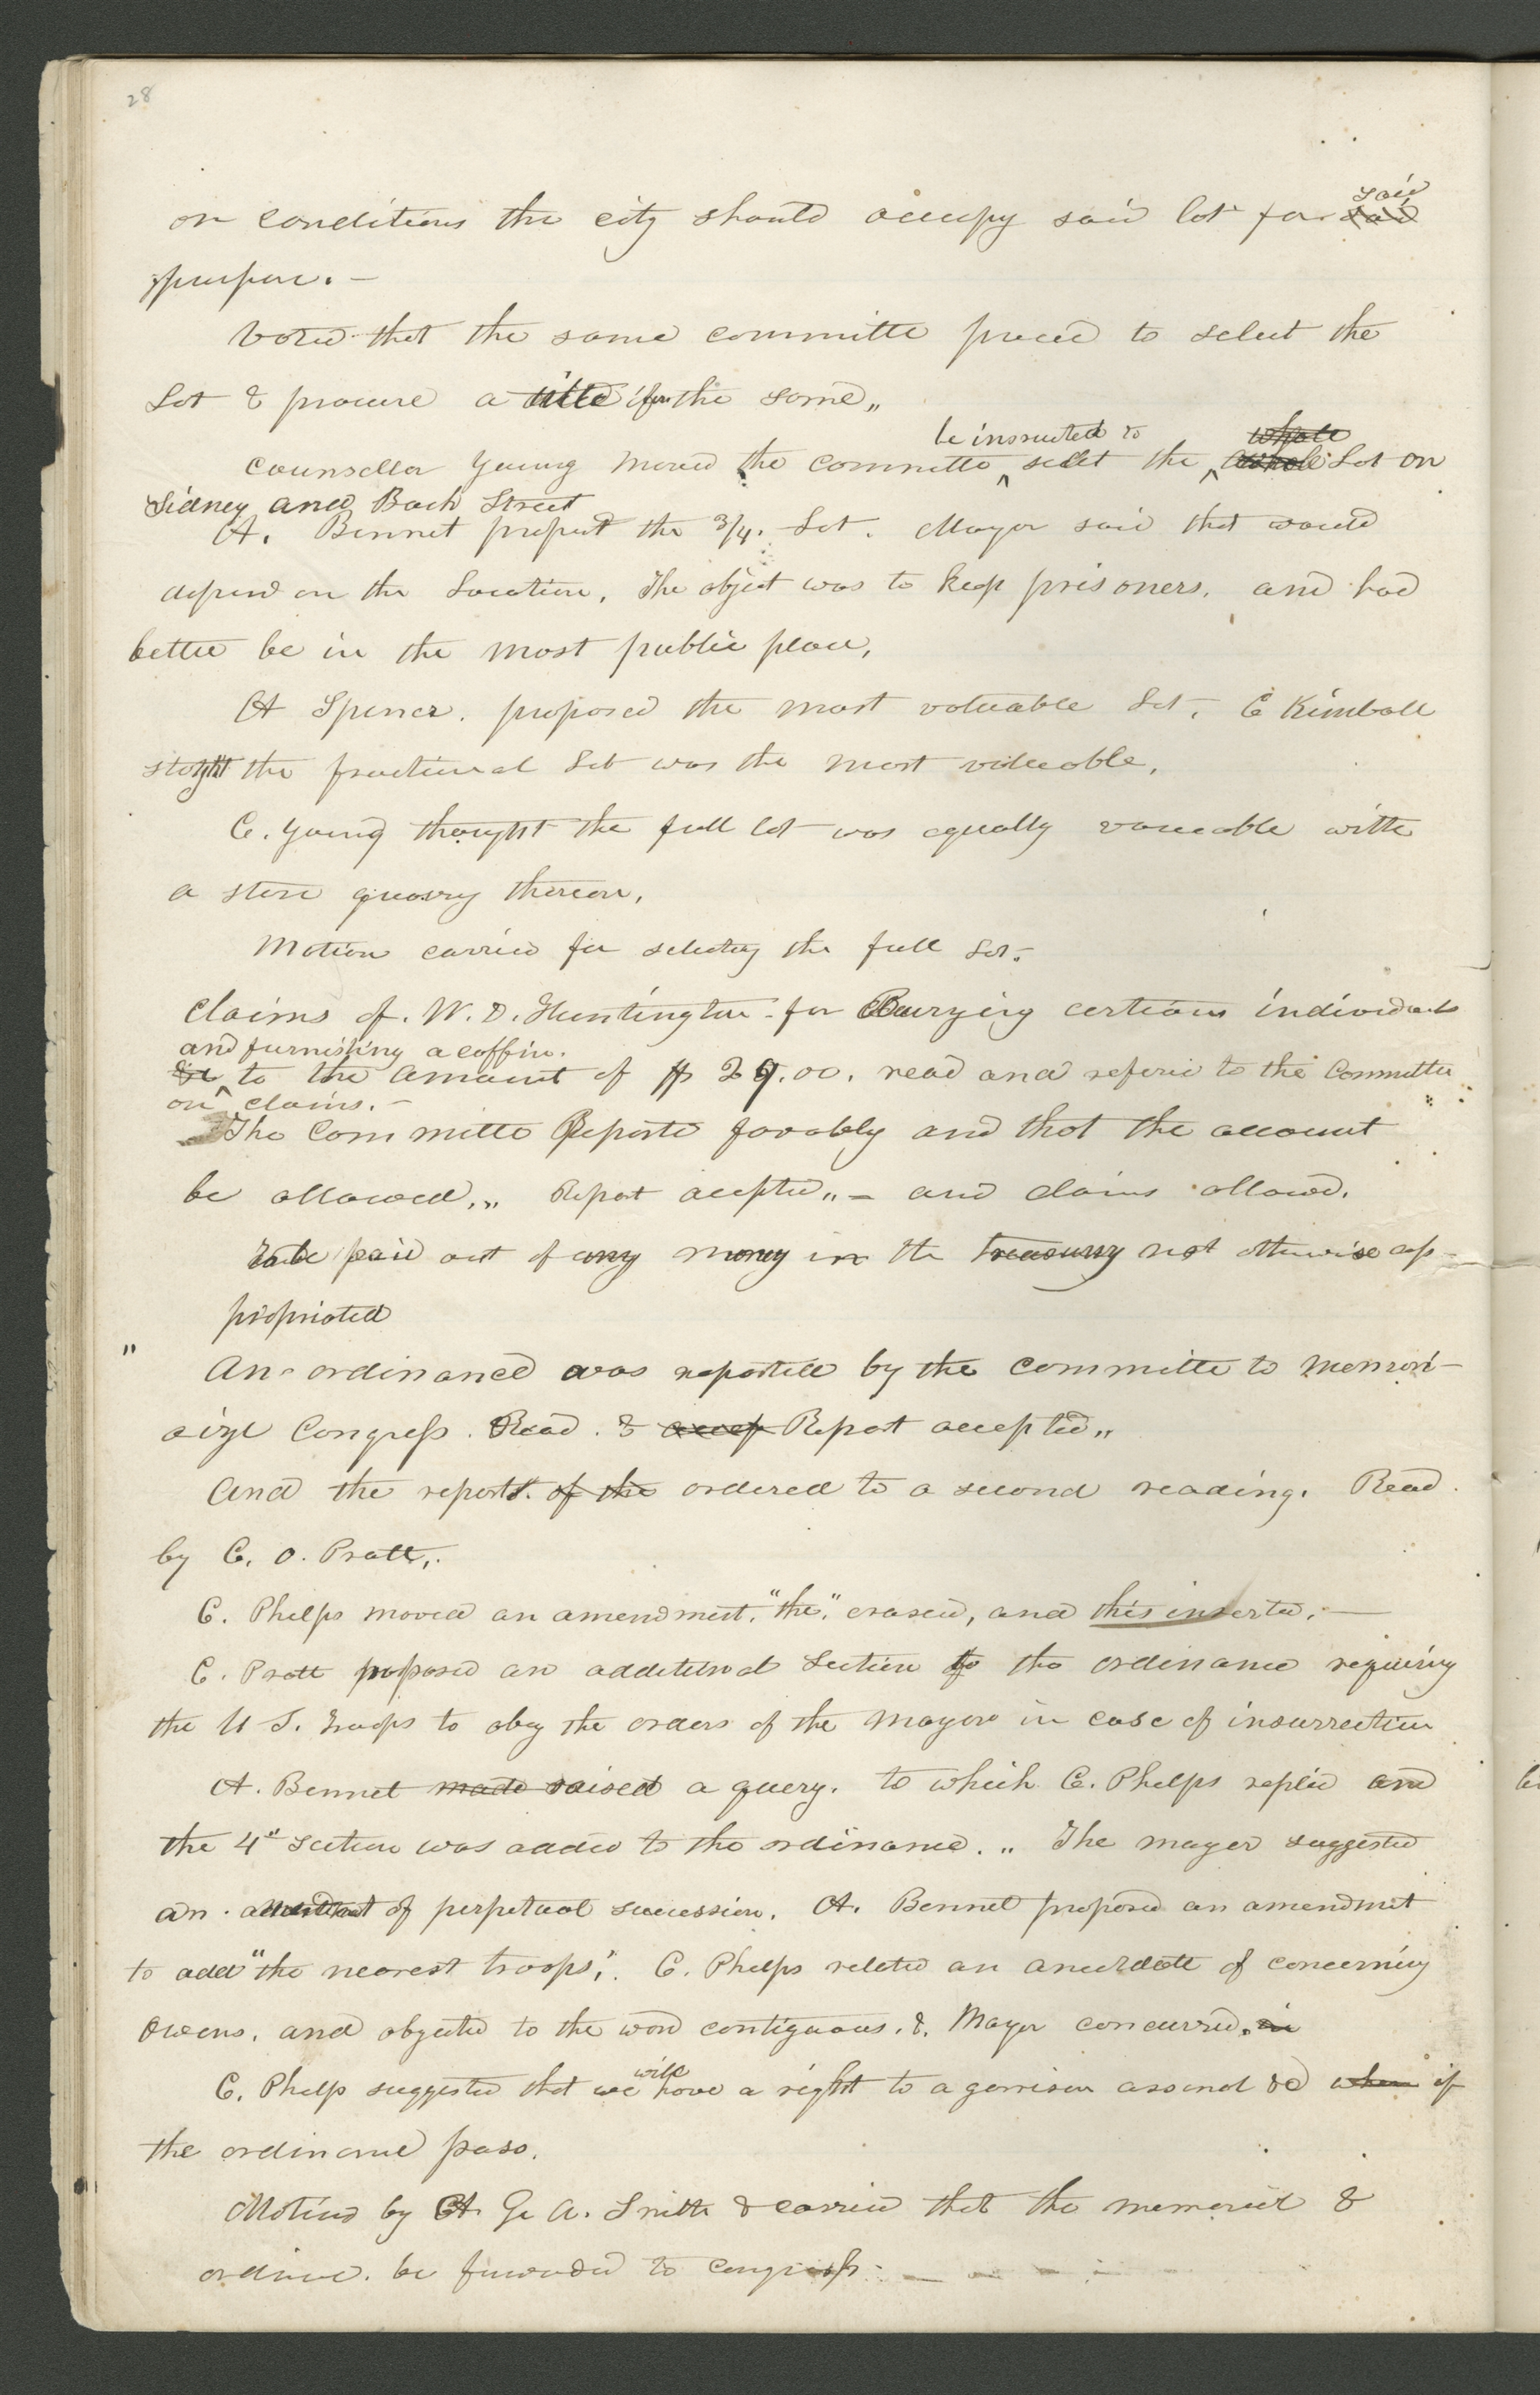 28
on conditions the city should occupy said lot for said said
purpose. —
Voted that the same committe proceed to select the
Lot & procure a title for the same,,
be insructed to whole
Counsellor Young moved the committe ^ selet the ^ whole Lot on
Sidney and Bach Street
A. Bennet prefered the 3/4. Lot. Mayor said that would
depend on the Location. The object was to keep prisoners. and had
better be in the most public place,
A Spencer. proposed the most valuable Lot. C Kimball
thought the fractional Lot was the most valueable.
C. Young thought the full lot was equally valueable with
a stone quarry thereon.
Motion carried for selecting the full Lot.
Claims of. W. D. Huntington for Burying certain individuals
and furnishing a coffin.
&c ^ to the amount of $ 29.00. read and referred to the Committee
on claims. —
The Committe Reported favorably and that the account
be allowed.,, Report accepted,, — and claims allowed.
to be paid out of any money in the treasury not otherwise ap-
propriated
" An ordinance was reported by the committe to memori-
alize Congress. Read. & accep Report accepted,,
And the report. of the ordered to a second reading. Read.
by C. O. Pratt,.
C. Phelps moved an amendment. "the," erased, and this inserted. —
C. Pratt proposed an additional Section to the ordinance requiring
the U S. troops to obey the orders of the Mayor in case of insurrection
A. Bennet made raised a query. to which C. Phelps replied and
the 4" section was added to the ordinance. ,, The mayor suggested
an amendment of perpetual succession. A. Bennet proposed an amendmet
to add "the nearest troops,". C. Phelps related an anecdote of concerning
Owens. and objected to the word contiguous. &. Mayor concurred. in
will
C. Phelps suggested that we have a right to a garrison arsenal &c when if
the ordinance pass.
Motioned by A. Ge A. Smith & carried that the memorial &
ordince. be forwarded to Congress. —